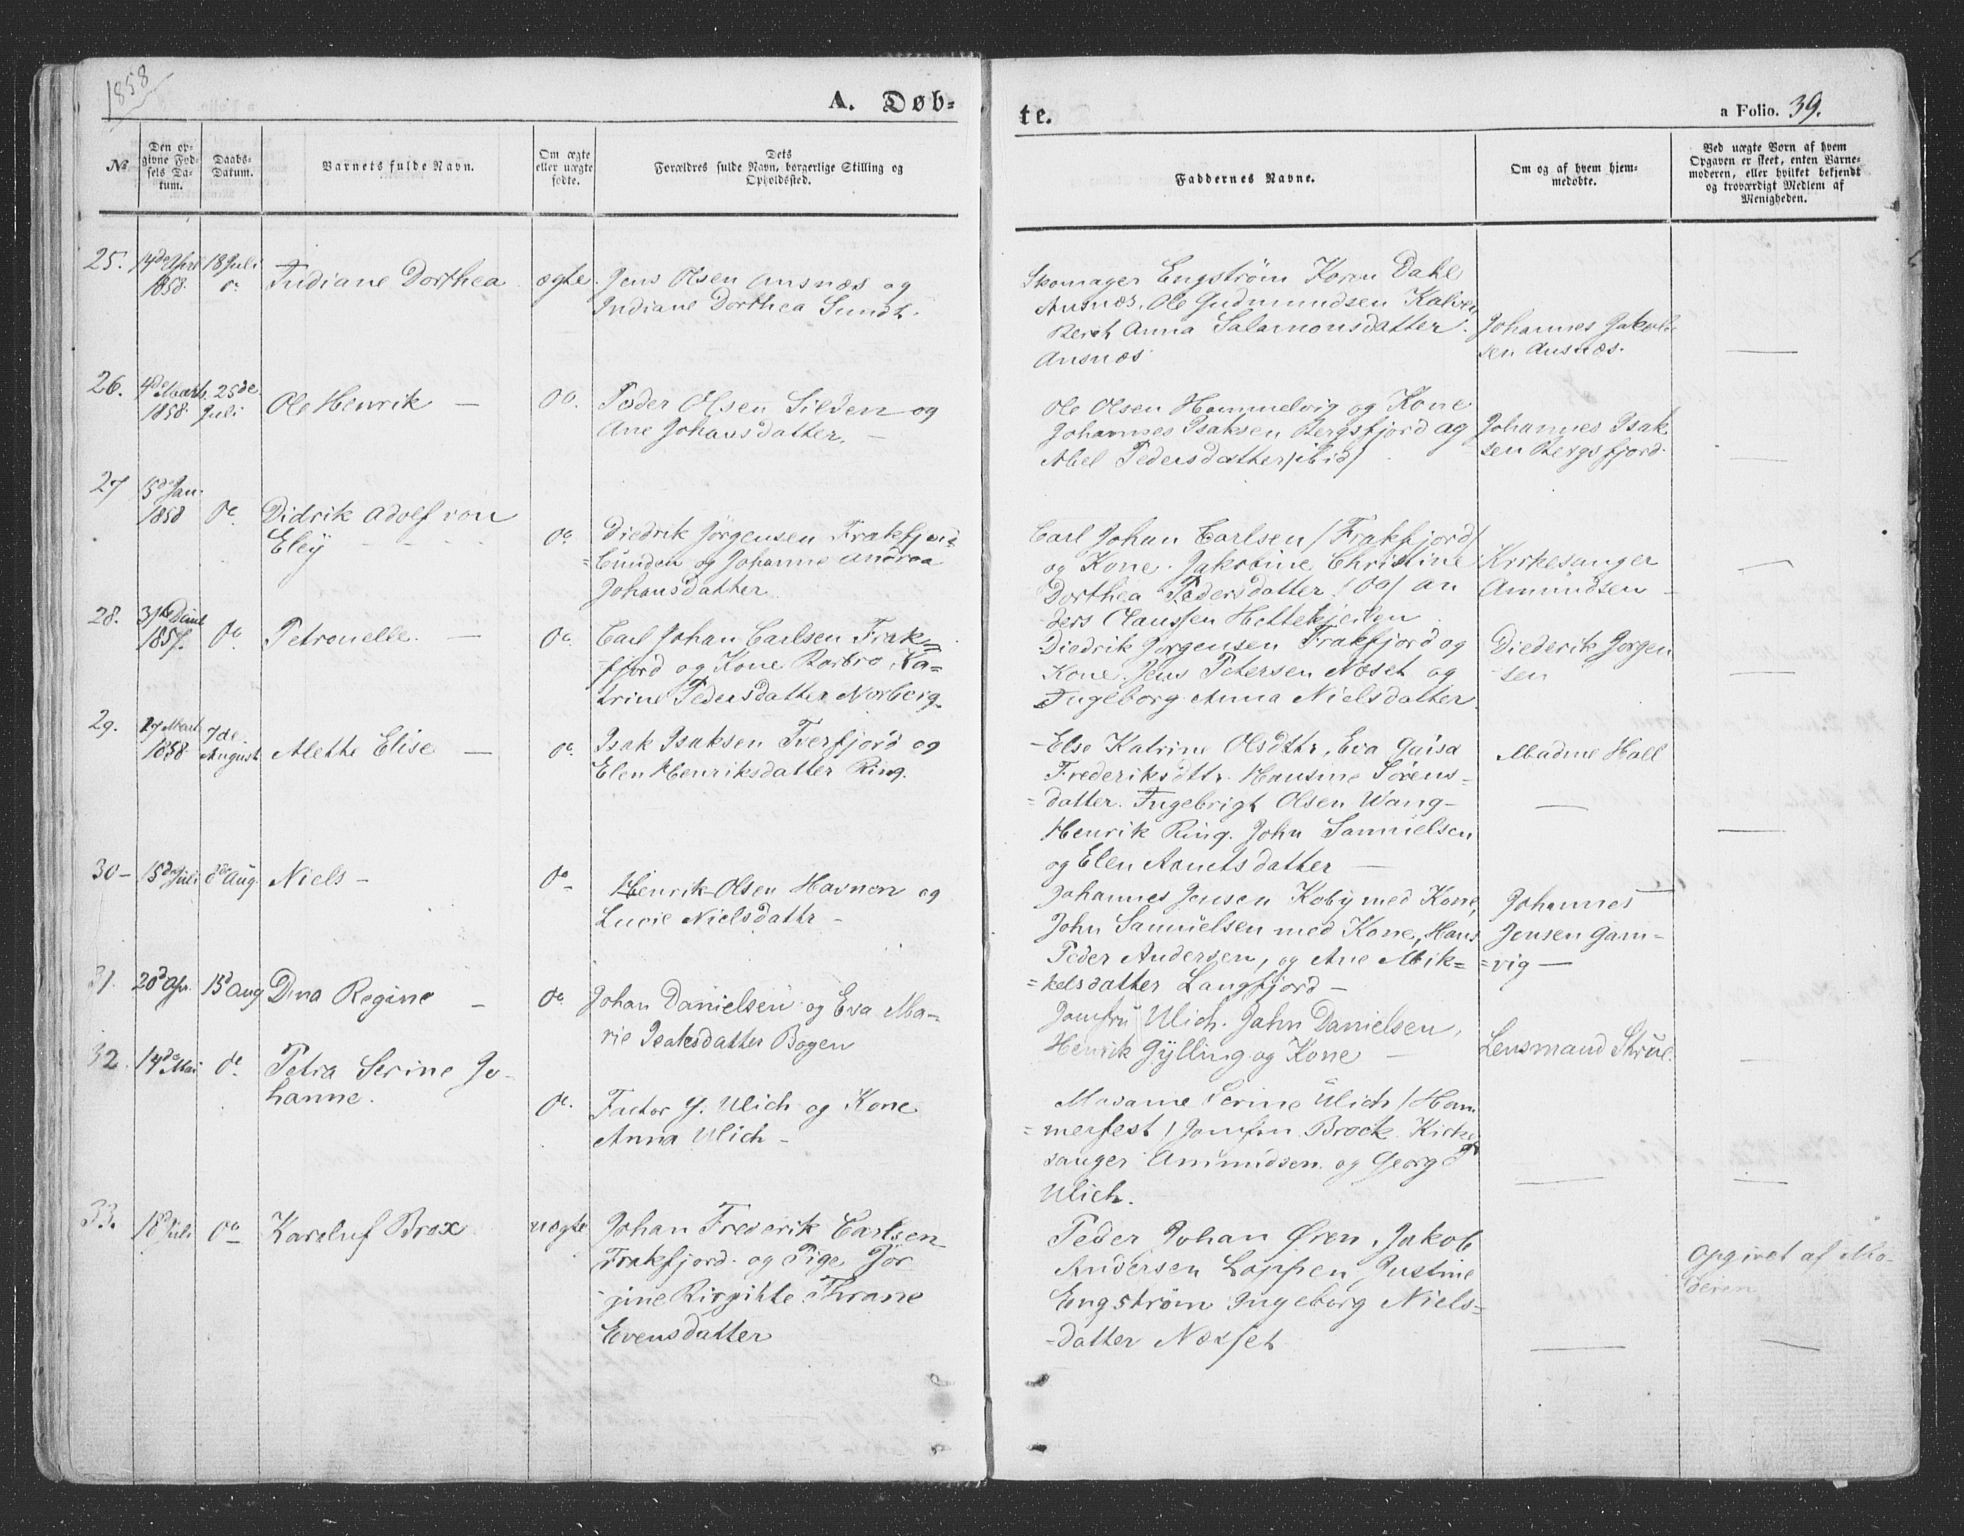 1858
A. Døb-
te.
a Folio. 39.
No.
Den op-
givne Fød-
sels Da-
tum.
Daabs-
Datum.
Barnets fulde Navn.
Om ægte
eller uægte
fødte.
Dets
Forældres fulde Navn, borgerlige Stilling og
Opholdssted.
Faddernes Navne.
Om og af hvem hjem-
medøbte.
Ved uægte Børn af hvem
Opgaven er skeet, enten Barne-
moderen, eller hvilket bekjendt
og troværdigt Medlem af
Menigheden.
25.
1858
18 Juli
Indiane Dorthea
ægte
Jens Olsen Ansnæs og
Indiane Dorthea Sundt.
Skomager Engström Karen Dahl
Ansnæs. Ole Gudmundsen
Berit Anna Salamonsdatter
Ansnæs
Johannes Jakob-
sen Ansnæs.
26.
4de Marts
1858
25de
Juli
Ole Henrik —
Do.
Peder Olsen Silden og
Ane Johansdatter. —
Ole Olsen Hammelvig og Kone
Johannes Isaksen Bergsfjord og
Abel Pedersdatter /ibid/
Johannes Isak
sen Bergsfjord.
27
5d Jan.
1858
Do.
Didrik Adolf von
Eley
Do.
Diedrik Jørgensen Frakfjord
og Johanne Andrea
Johansdatter
Carl Johan Carlsen /Frakfjord/
og Kone. Jakobine Christine
Dorthea Pedersdatter /Do/ An
ders Claussen
Kirkesanger
Amundsen —
28.
1857.
Do.
Petronelle. —
Do.
Carl Johan Carlsen Frak=
fjord og Kone Barbro Ka=
trine Pedersdatter Norberg
Diedrik Jørgensen Frakfjord og
Kone. Jens Petersen Næset og
Ingeborg Anna Nielsdatter
Diederik Jørgen
sen
29.
17 Marts
1858
7de
August
Alette Elise —
Do.
Isak Isaksen Tverfjord og
Elen Henriksdatter Ring.
Else Katrine Olsdttr. Eva
Frederiksdttr. Hansine Sörens=
datter. Ingebrigt Olsen Wang—
Henrik Ring. John Samuelsen
og Elen datter —
Madme Hall
30—
15d Juli
8de Aug.
Niels —
Do
Henrik Olsen Havnen og
Lucie Nielsdattr —
Johannes Jensen Koby med Kone,
John Samuelsen med Kone, Hans
Peder Andersen, og Ane Mik=
=kelsdatter Langfjord —
Johannes
Jensen Gam—
=vig —
31.
20d Apr.
15d Aug
Dina Regine —
Do.
Johan Danielsen og Eva Ma=
rie Isaksdatter Bogen
Jomfru Ulich. Jahn Danielsen,
Henrik Gylling og Kone —
Lensmand
32.
14de Mai
Do.
Petra Serine Jo-
hanne.
Do.
Factor J. Ulich og Kone
Anna Ulich —
Madame Serine Ulich /Ham
=merfest/ Jomfru Brock Kirke
sanger Amundsen og Georg
Ulich.
33.
18d Juli
Do
Karoluf Brox
uægte
Johan Frederik Carlsen
Frakfjord og Pige Jør
gine Birgitte Thrane
Evensdatter
Peder Johan Ören. Jakob
Andersen Loppen Justine
Engström Ingeborg Niels=
=datter Næsset
Opgivet af Mo-
deren